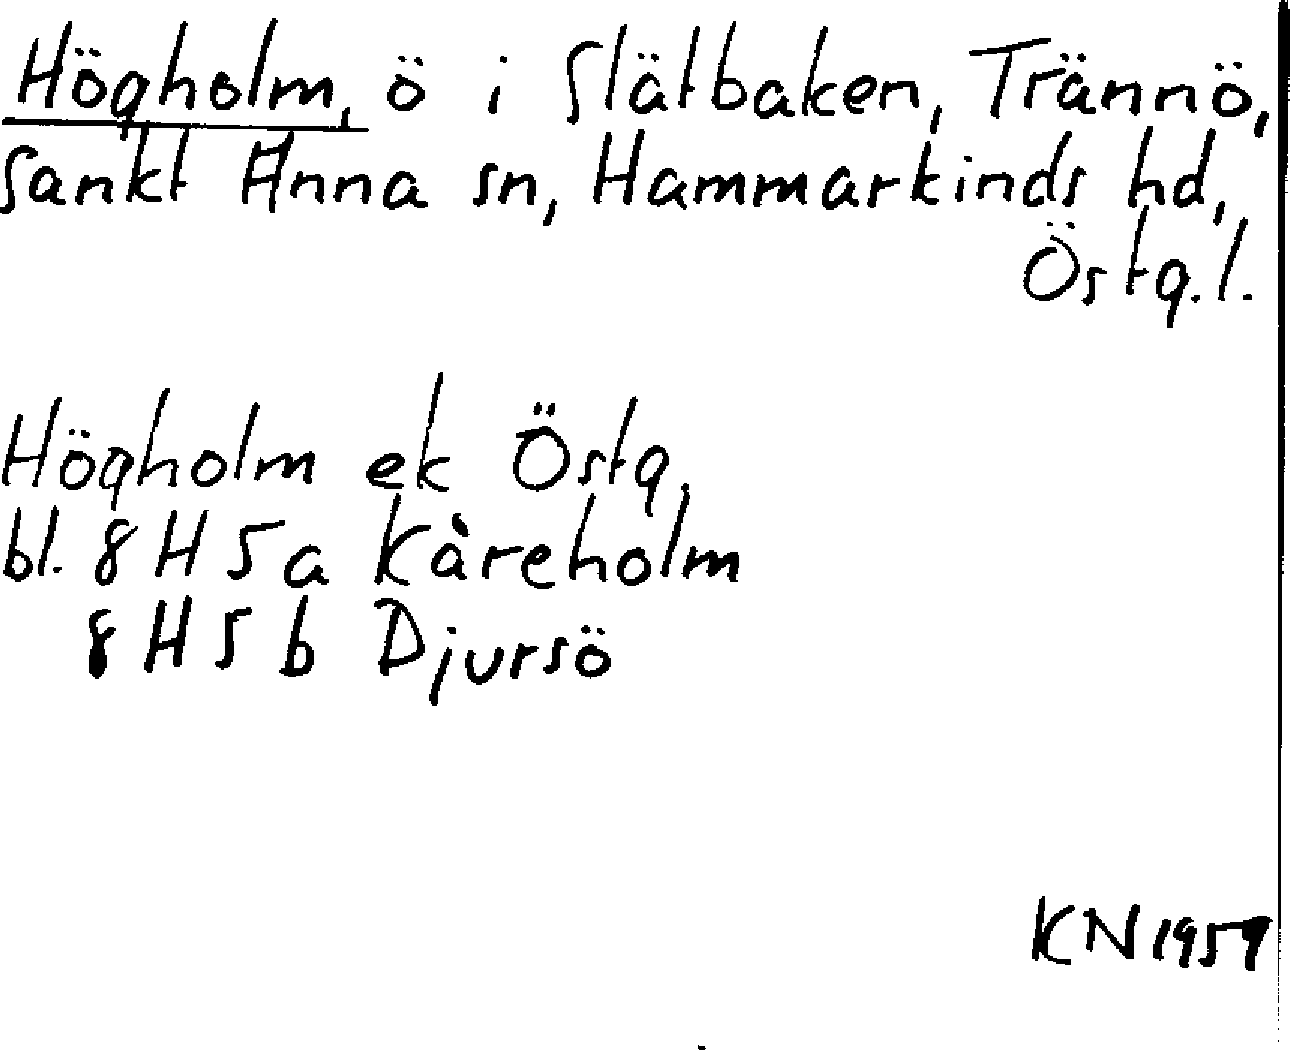 Högholm, ö i Slätbaken, Trännö,
Sankt Anna sn, Hammarkinds hd,
Östg. l.
Högholm ek Östg.
bl. 8 H 5 a Kåreholm
8 H 5 b Djursö
KN 1959